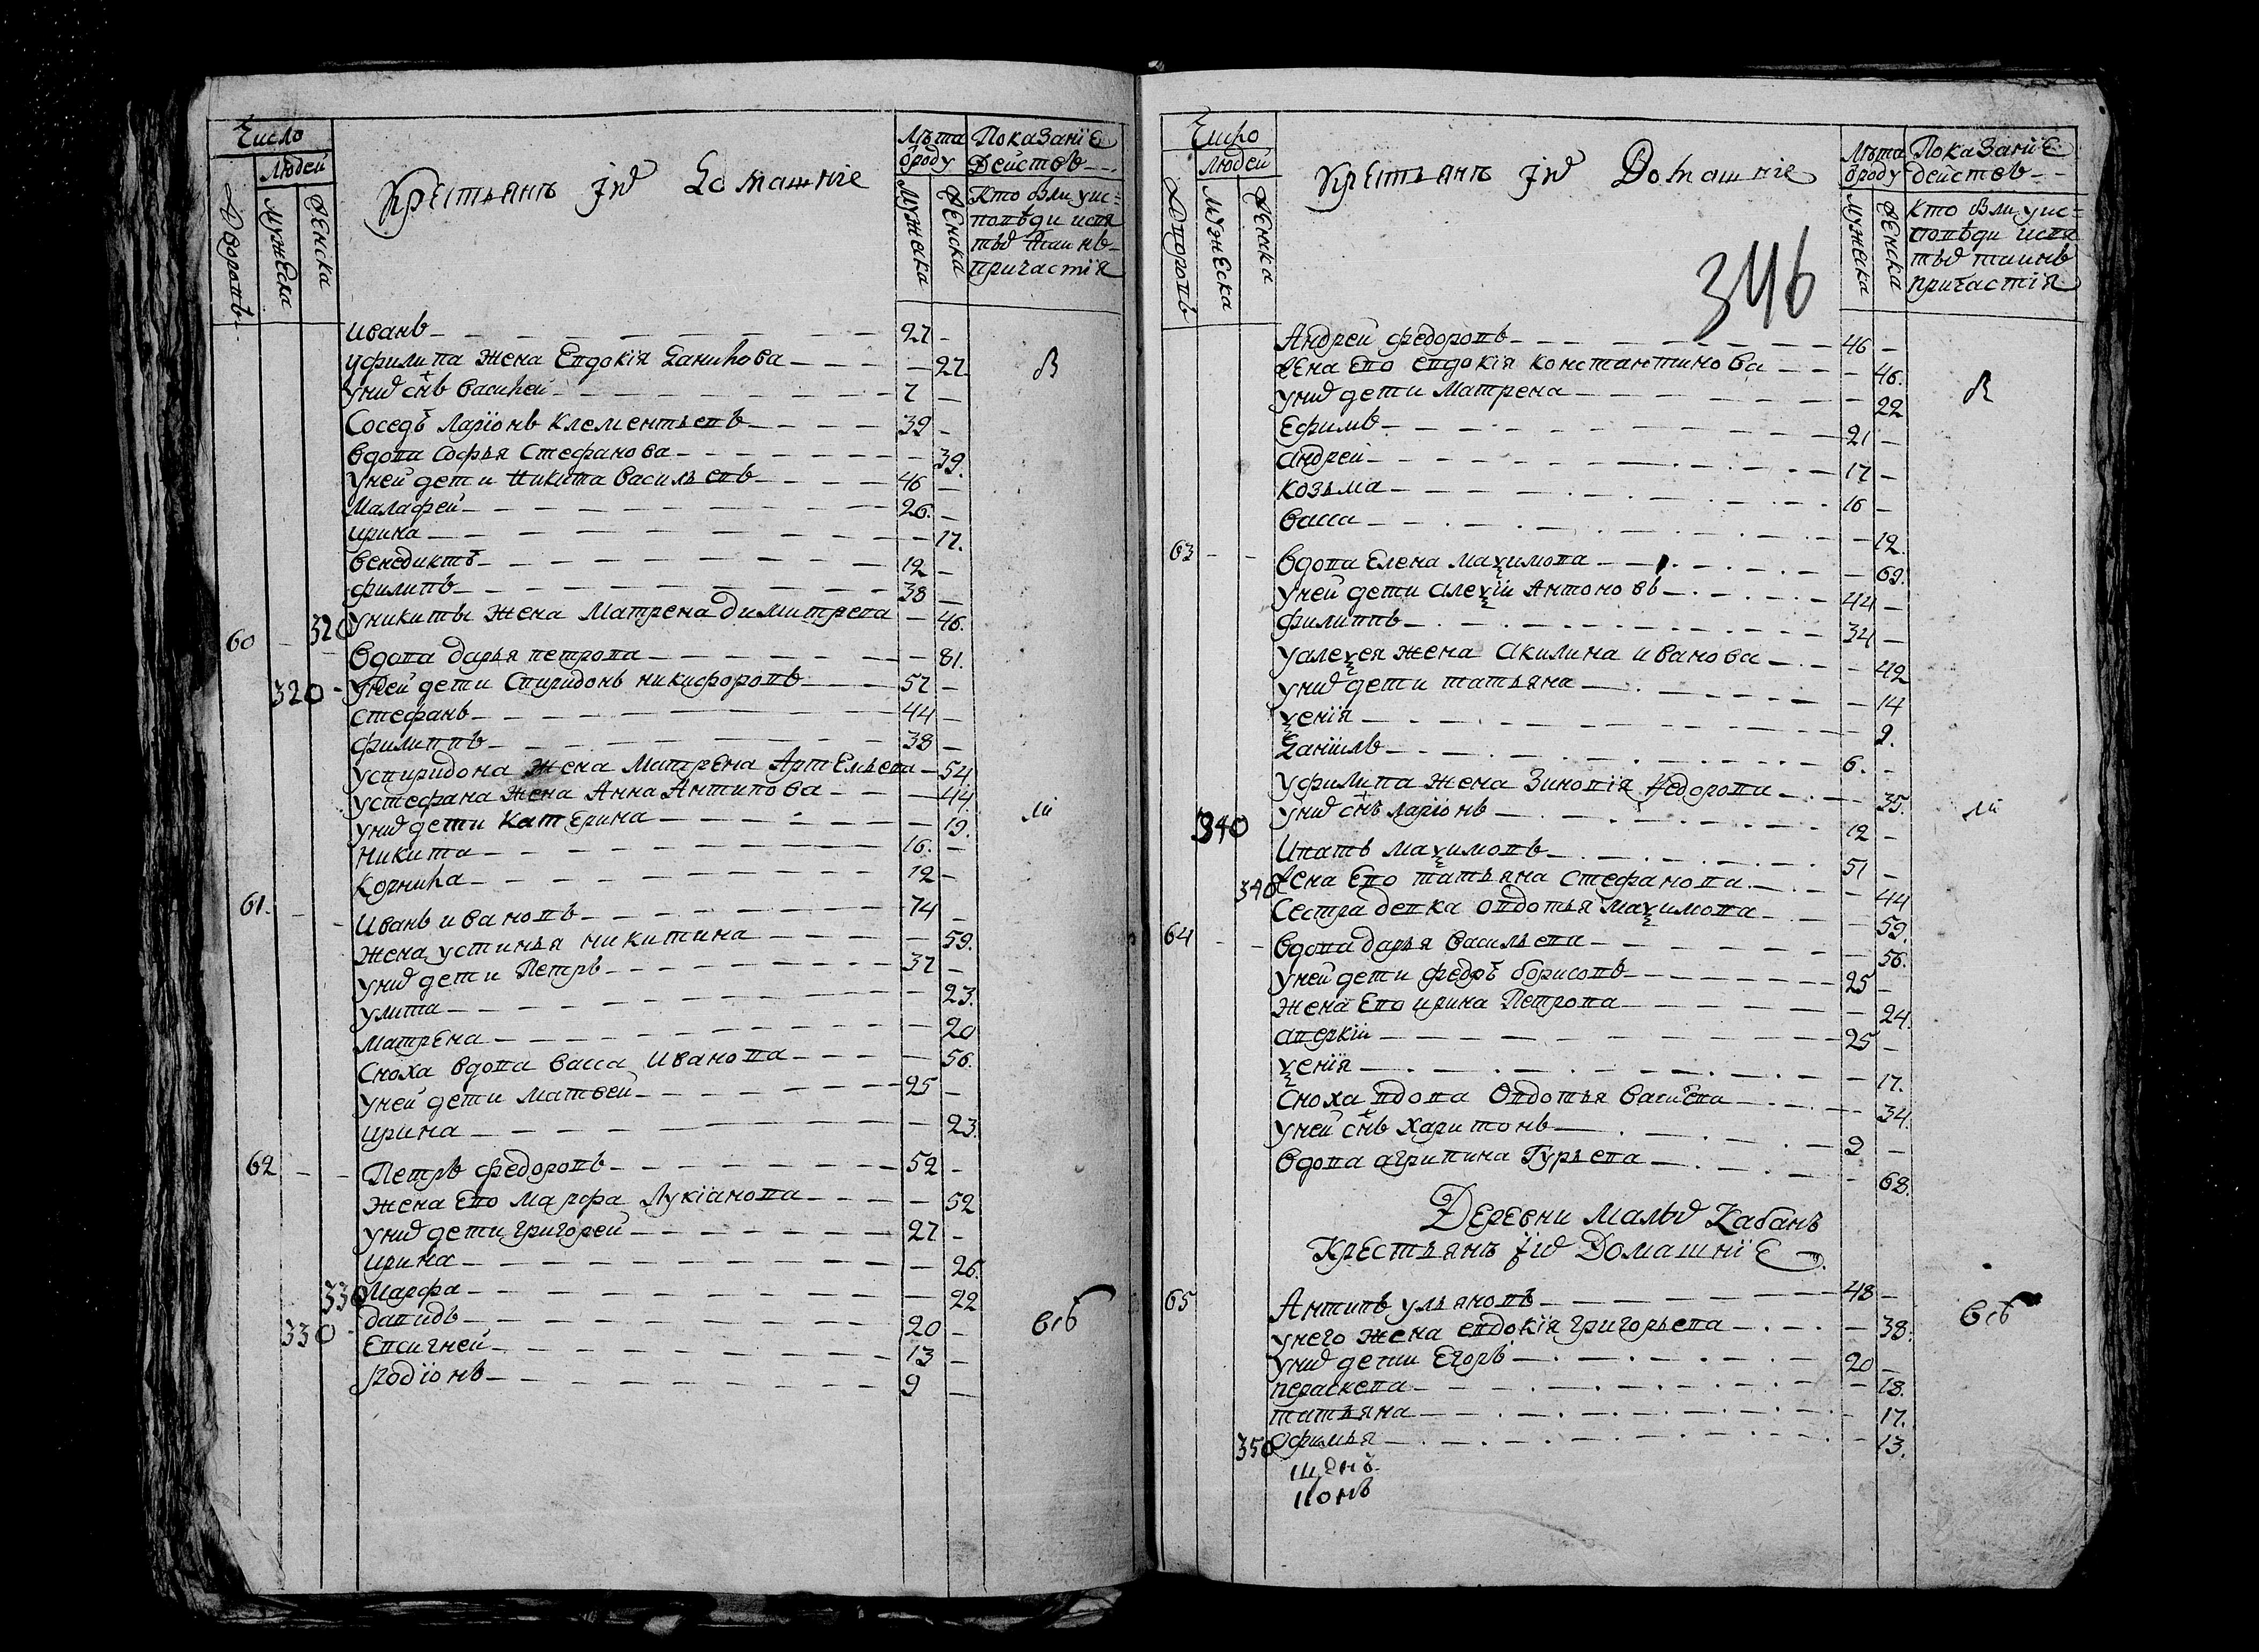 Число
Людей
Дворовъ
Мужеска
Женска
Крестьянъ ихъ Домашніе
Лѣта
ѿроду
Мужеска
Женска
Показаніе
действъ
Кто былъ у ис=
поведи и свя
тыхъ таинъ
причастія
Иванъ 27
У филипа жена Евдокія Данилова 27
В
У них снъ Василей 7
Соседъ Ларіонъ Клементьевъ 39
Вдова Софья Стефанова 39.
У ней дети Никита Васильевъ 46
Малафей 26.
Ирина 17.
Венедиктъ 12
Филипъ 38
320 У никиты жена Матрена димитрева 46.
60 Вдова дарья петрова 81.
320 У ней дети Спиридонъ никифоровъ 57
Стефанъ 44
Филиппъ 38
У спиридона жена Матрена Артемьева 54
У стефана жена Анна Антипова 44
У них дети Катерина 19.
Никита 16.
Корнила 12
61. Иванъ ивановъ 74
Жена устинья никитина 59.
У них дети Петръ 37
Улита 23.
Матрена 20
Сноха вдова Васса Иванова 56.
У ней дети Матвей 25
Ирина 23.
62 Петръ федоровъ 52
Жена ево Марфа Лукіанова 52
У них дети григорей 27
Ирина 26.
330 Марфа 22
330 Давидъ 20
Евсигней 13
Родіонъ 9
Число
Людей
Дворовъ
Мужеска
Женска
Крестьянъ ихъ Домашніе
346
Лѣта
ѿроду
Мужеска
Женска
Показаніе
действъ
Кто былъ у ис=
поведи и свя
тыхъ таинъ
причастія
Андрей федоровъ 46
Жена ево евдокія константинова 46.
В
У них дети Матрена 22
Ефимъ 21
Андрей 17
Козьма 16
Васса 12.
63 Вдова Елена Маѯимова 69.
У ней дети Алеѯій Антоновъ 44
Филиппъ 34
У алеѯея жена Акилина иванова 42
У них дети татьяна 14
Ѯенія 9.
Даніилъ 6.
У филипа жена Зиновія Федорова 35.
340 У них снъ ларіонъ 12
Ипатъ Маѯимовъ 51
340 Жена ево татьяна стефанова 44
Сестра девка овдотья Маѯимова 59.
64 Вдова дарья Васильева 56.
У ней дети федоръ борисовъ 25
Жена ево ирина Петрова 24.
Аверкій 25
Ѯенія 17.
Сноха вдова Овдотья Васильева 34.
У ней снъ Харитонъ 2
Вдова агрипина Гурьева 68.
Деревни Малых Кабанъ
Крестьянъ ихъ Домашніе
65 Антипъ ульяновъ 48
У него жена евдокія григорьева 38.
У них дети Егоръ 20
Параскева 18.
Татьяна 17.
350 Офимья 13.